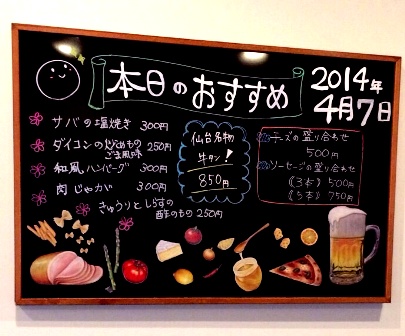 本日のおすすめ
2014年
4月7日
サバの塩焼き 300円
ダイコンの炒めもの 250円
ごま風味
和風ハンバーグ 300円
肉じゃが 300円
きゅうりとしらすの
酢のもの 250円
仙台名物
牛タン!
850円
チーズの盛り合わせ
500円
ソーセージの盛り合わせ
(3本) 500円
(5本) 750円